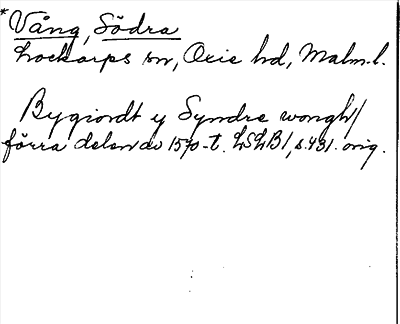 * Vång, Södra
Lockarps sn, Oxie hd, Malm. l.
Bygiordt y Syndre wongh/
förra delen av 1570-t. LSLB1, s. 431. orig.